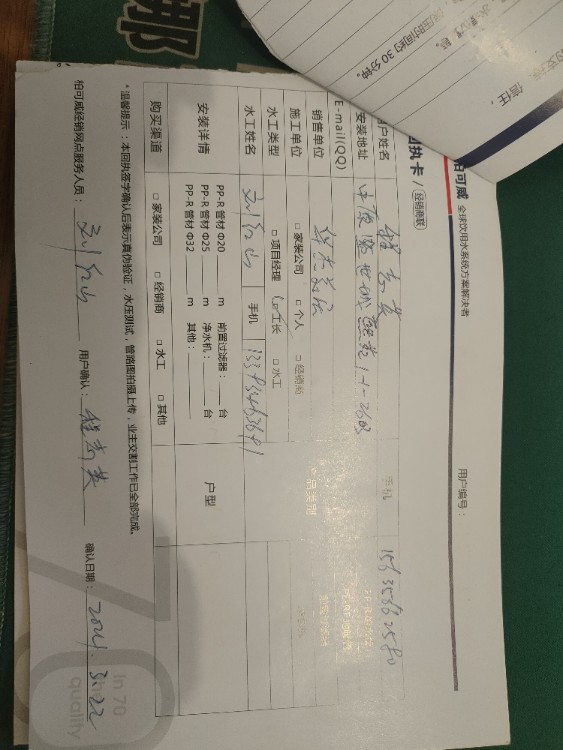 那
压时间约30分钟。
信任,
柏可威 全球饮用水系统方案解决者
用户编号:
回执卡 / 经销商联
户姓名 程志英 手机 15635862580
安装地址 中原 世纪城 1-1-2603
E-mail(QQ)
销售单位
施工单位 □ 家装公司 □ 个人 □ 经销商
水工类型 □ 项目经理 工长 □ 水工
水工姓名 刘红山 手机 13393463691
安装详情 PP-R 管材 Φ20 m 前置过滤器: 台 户型
PP-R 管材 Φ25 m 净水机: 台
PP-R 管材 Φ32 m 其他:
购买渠道 □ 家装公司 □ 经销商 □ 水工 □ 其他
*温馨提示:本回执签字确认后表示真伪验证,水压测试,管路图拍摄上传,业主交割工作已全部完成。
柏可威经销网点服务人员: 刘红山 用户确认: 程志英 确认日期: 2024.3.22
In 70
quality